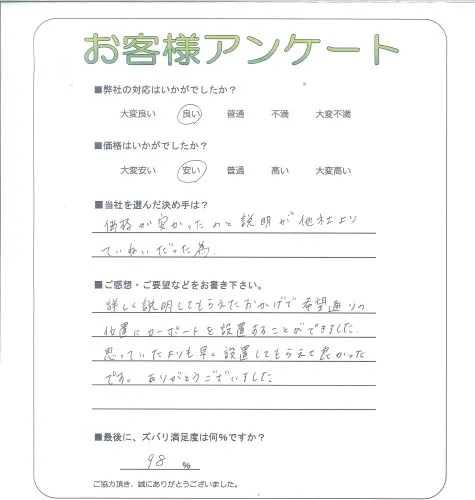 お客様アンケート
■弊社の対応はいかがでしたか？
大変良い 良い 普通 不満 大変不満
■価格はいかがでしたか？
大変安い 安い 普通 高い 大変高い
■当社を選んだ決め手は？
価格が安かったのと説明が他社より
ていねいだった為。
■ご感想・ご要望などをお書き下さい。
詳しく説明してもらえたおかげで希望通りの
位置にカーポートを設置することができました。
思っていたよりも早く設置してもらえて良かった
です。ありがとうございました。
■最後に、ズバリ満足度は何％ですか？
98 %
ご協力頂き、誠にありがとうございました。